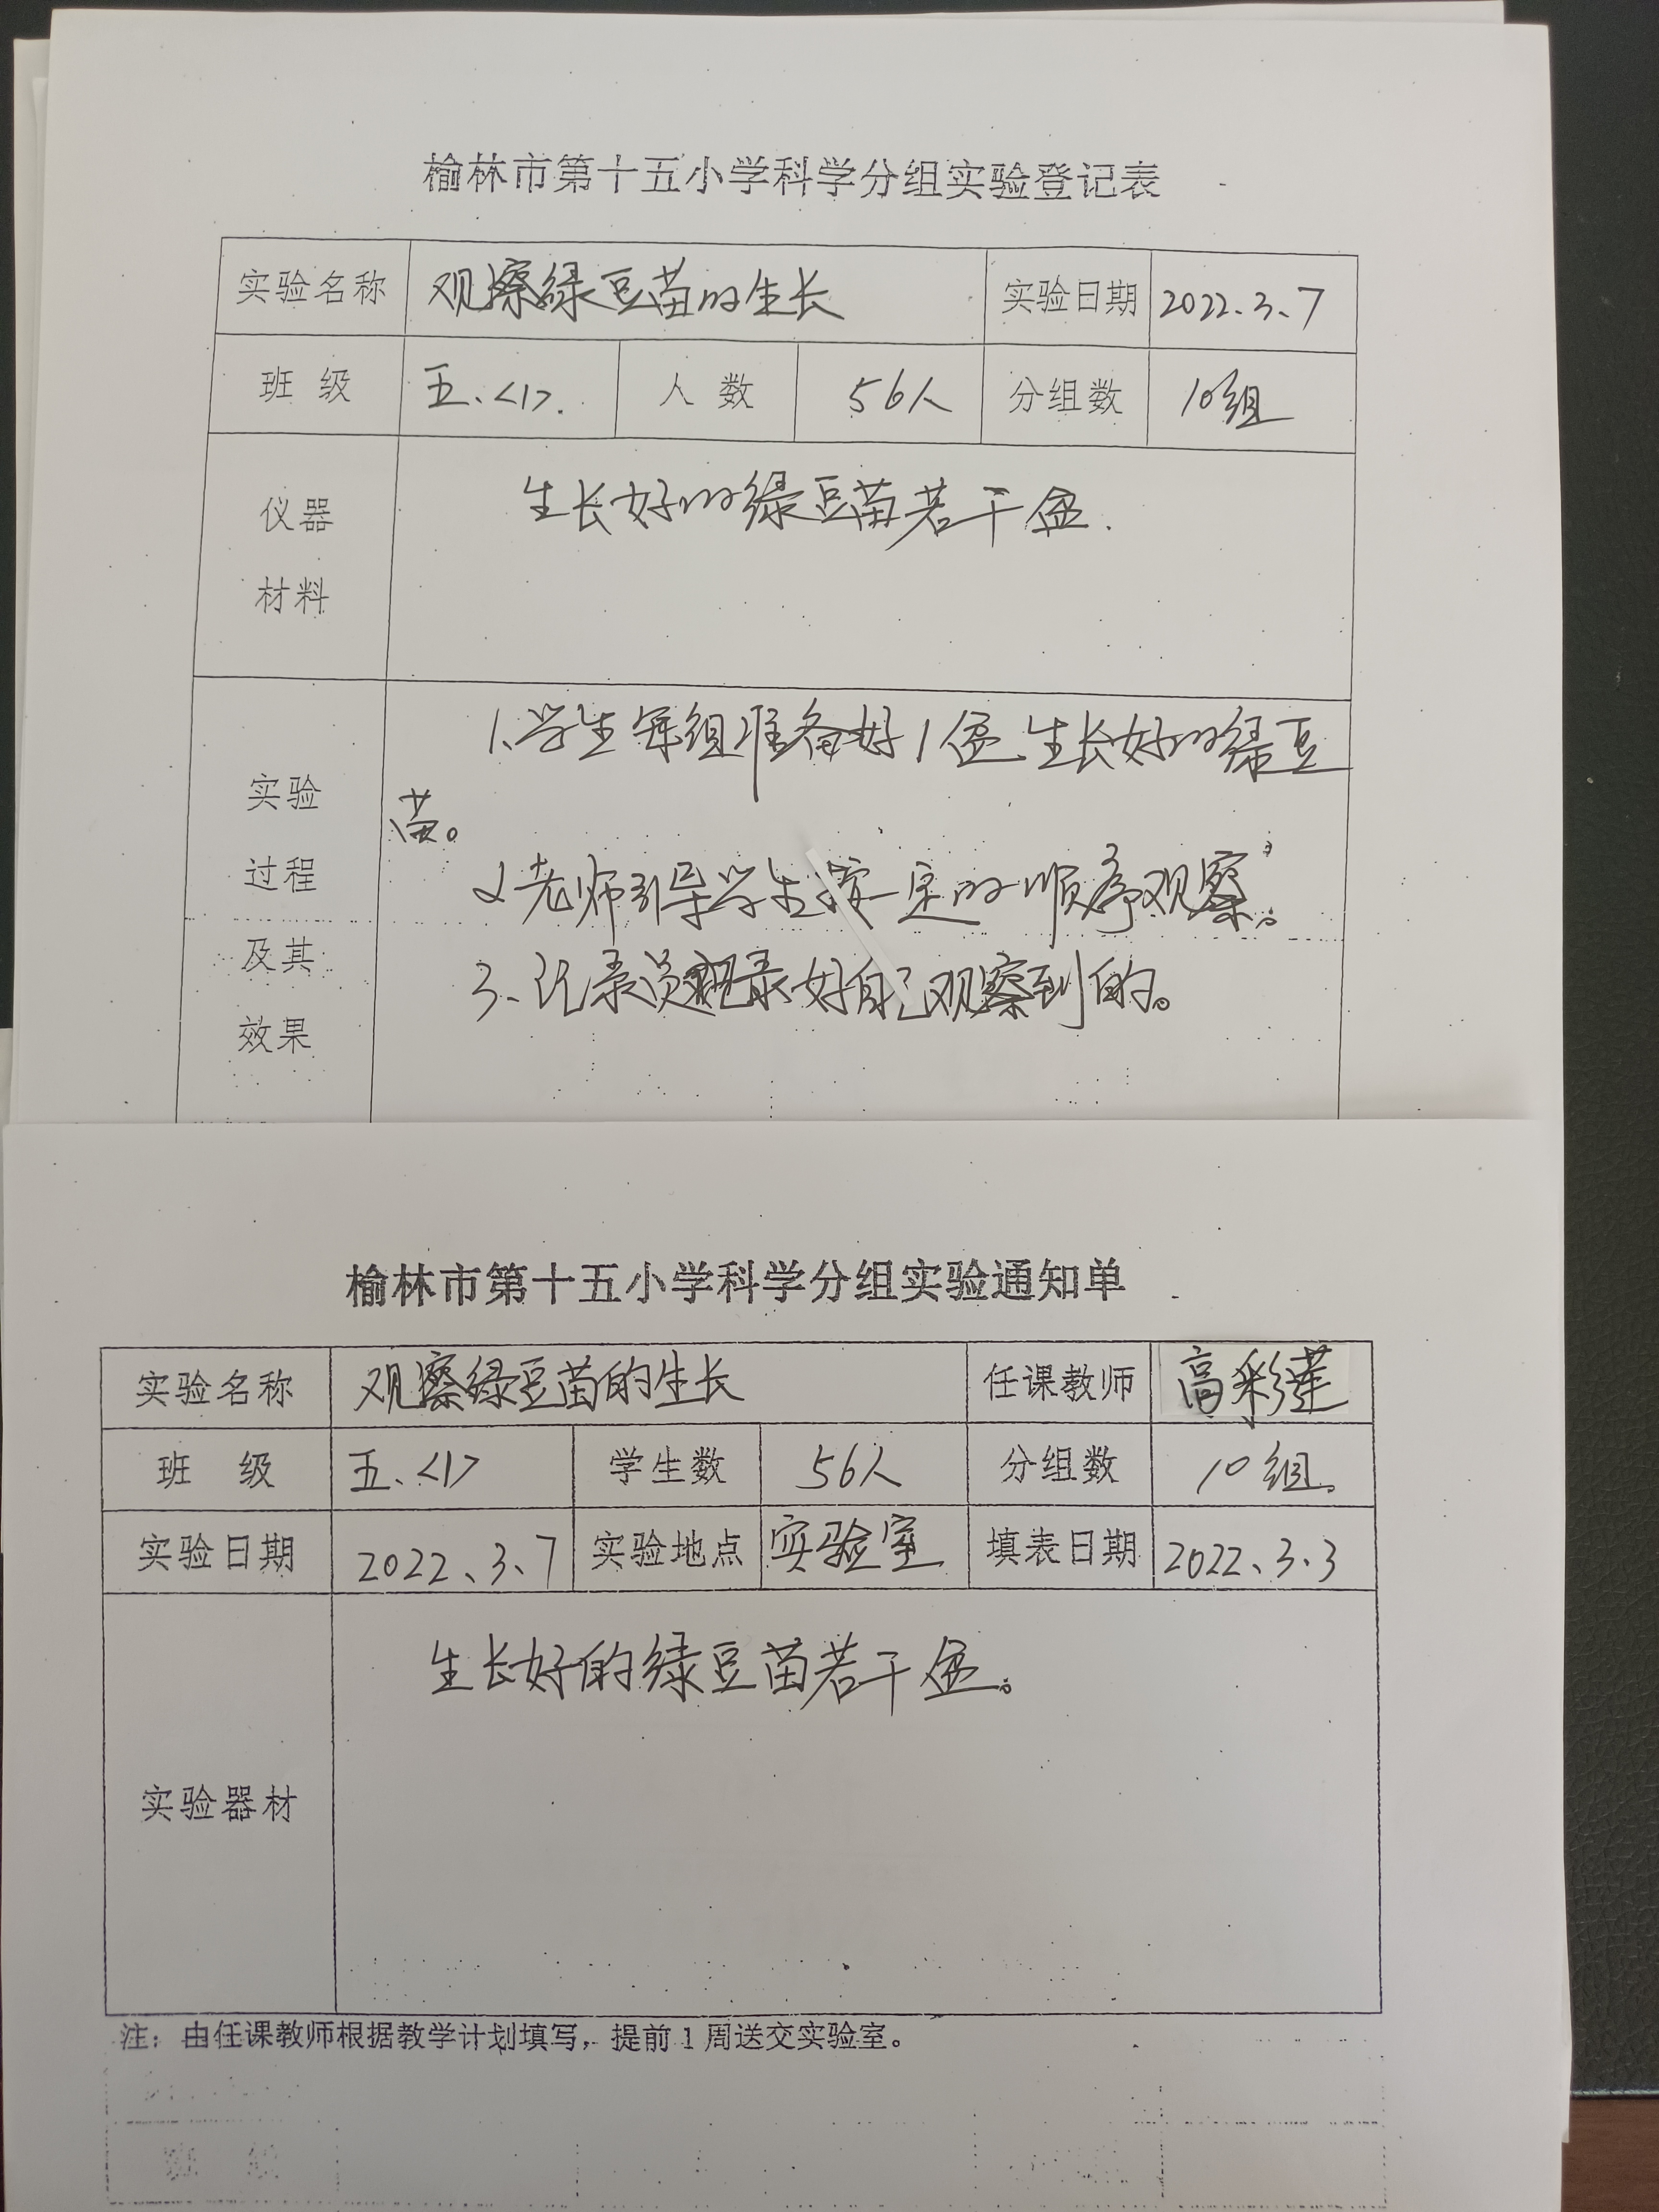 榆林市第十五小学科学分组实验登记表
实验名称 观察绿豆苗的生长 实验日期 2022、3、7
班 级 五、<1>. 人 数 56人 分组数 10组
仪器 生长好的绿豆苗若干盆.
材料
1、学生每组准备好1盆生长好的绿豆
实验
苗。
过程 2、老师引导学生按一定的顺序观察。
及其 3、记录员记录好自己观察到的。
效果
榆林市第十五小学科学分组实验通知单
实验名称 观察绿豆苗的生长 任课教师 高彩莲
班 级 五、<1> 学生数 56人 分组数 10组
实验日期 2022、3、7 实验地点 实验室 填表日期 2022、3、3
生长好的绿豆苗若干盆。
实验器材
注：由任课教师根据教学计划填写，提前1周送交实验室。
班 级